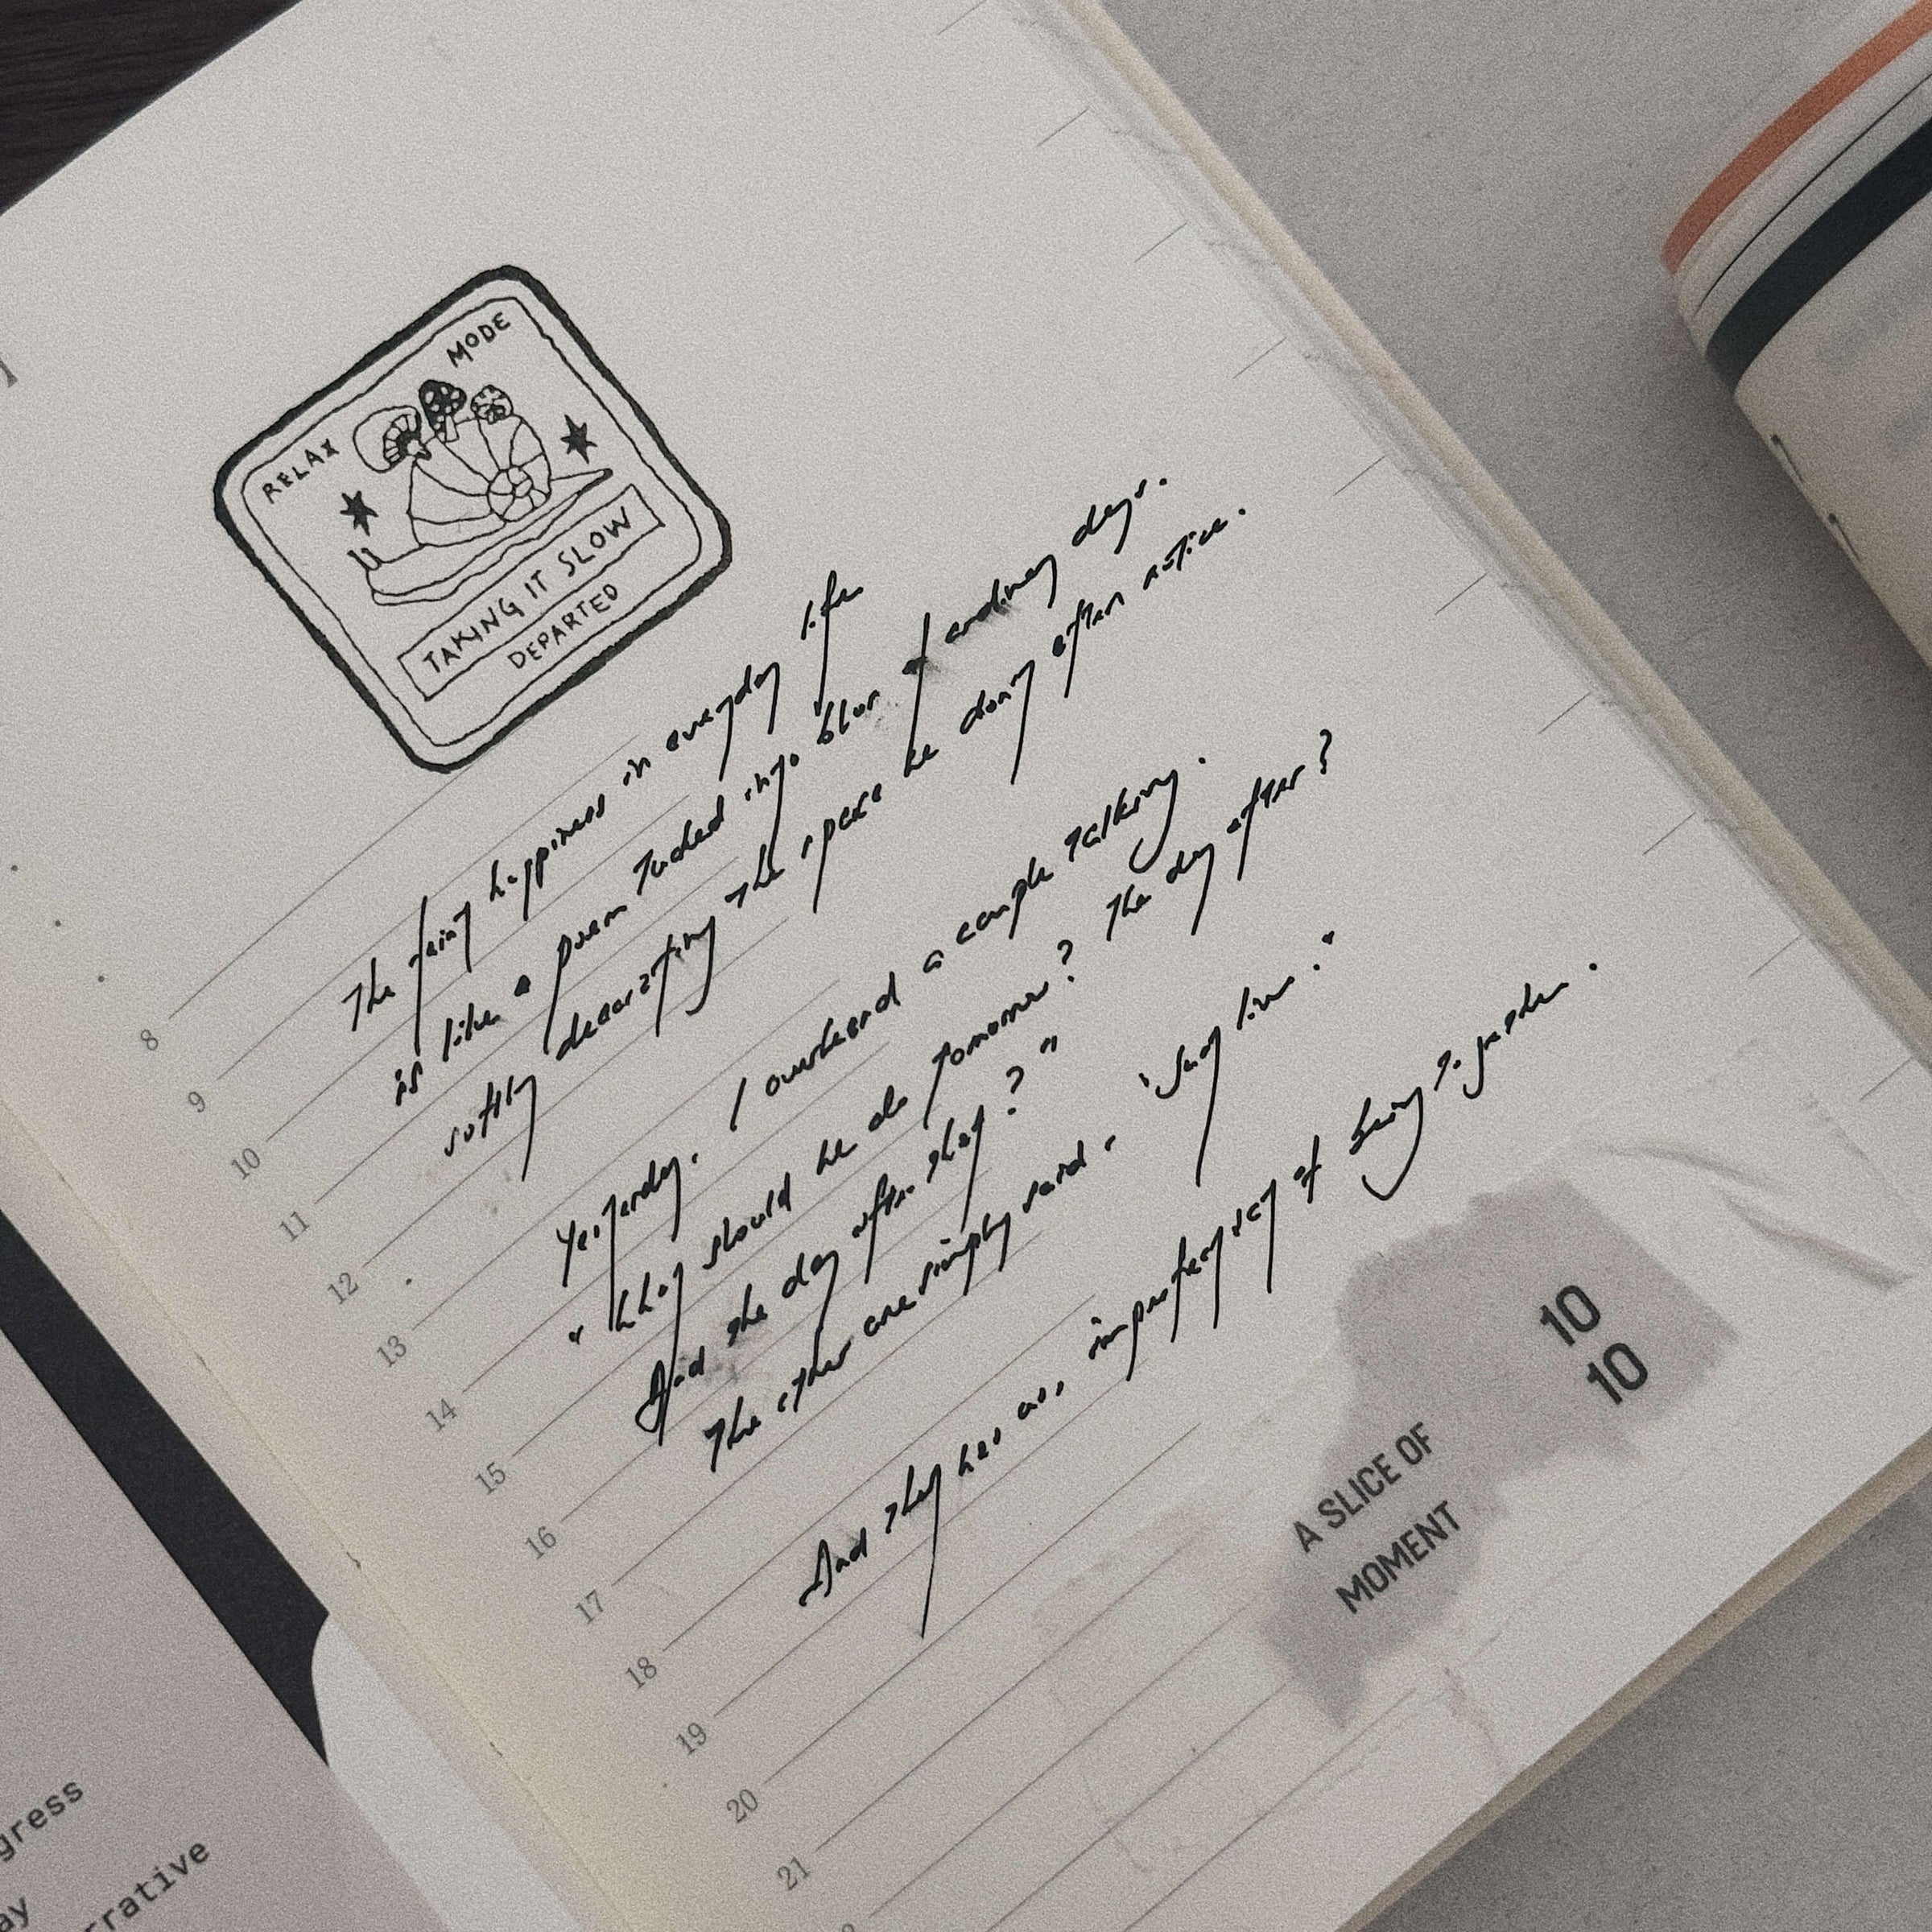 RELAX MODE
TAKING IT SLOW
DEPARTED
The tiny happiness in everyday life
is like a poem tucked into blur of ordinary days.
softly decorating the space we don't often notice.
Yesterday, I overheard a couple talking.
"What should we do tomorrow? The day after?
And the day after that?"
The other one simply said, "Just live."
And that was an, imperfect of being together.
8
9
10
11
12
13
14
15
16
17
18
19
20
21
10
10
A SLICE OF
MOMENT
gress
ay
rrative